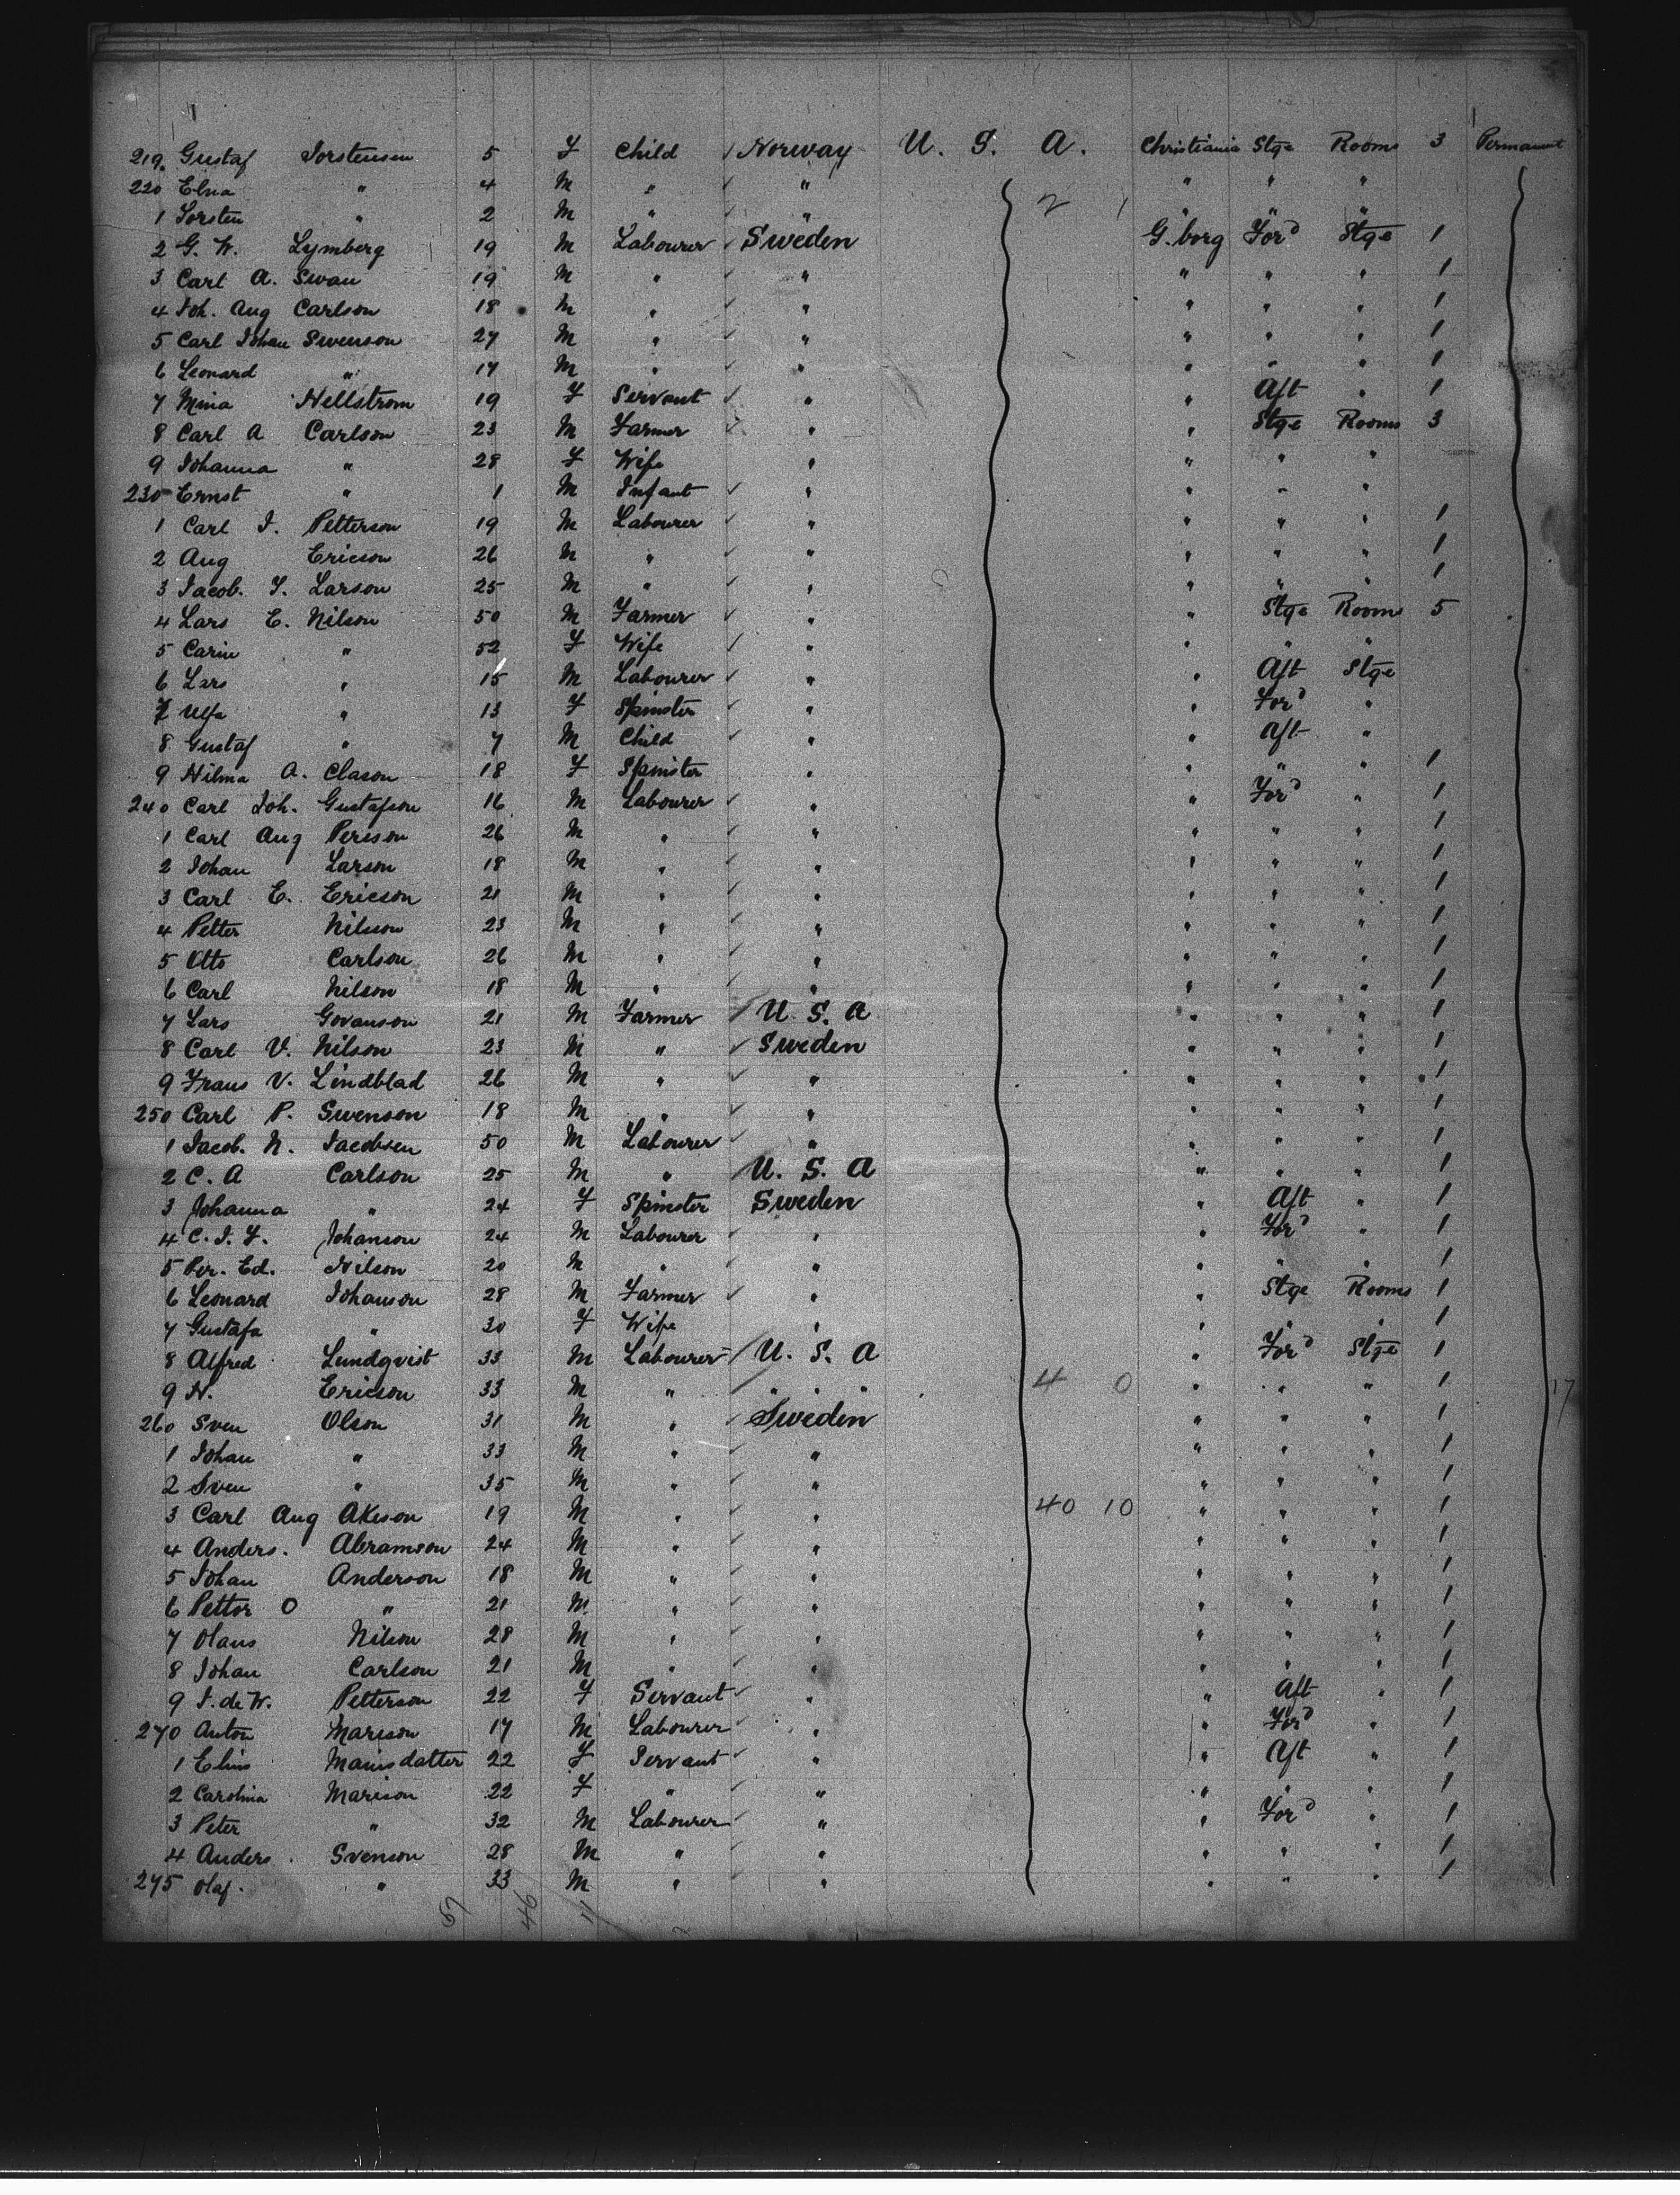 219. Gustaf Torstensen 5 F Child ✓ Norway U. S. A. Christiania Stge Rooms 3 Permanent
220 Elna " 4 M " ✓ " " " "
1 Torsten " 2 M " ✓ " 2 1 " " "
2 G. W. Lymberg 19 M Labourer ✓ Sweden G. borg For'd Stge 1
3 Carl A. Swan 19 M " ✓ " " " " 1
4 Joh. Aug Carlson 18 M " ✓ " " " " 1
5 Carl Johan Swenson 27 M " ✓ " " " " 1
6 Leonard " 17 M " ✓ " " " " 1
7 Mina Hellstrom 19 F Servant ✓ " " Aft " 1
8 Carl A Carlson 23 M Farmer ✓ " " Stge Rooms 3
9 Johanna " 28 F Wife " " " "
230 Ernst " 1 M Infant ✓ " " " "
1 Carl J. Petterson 19 M Labourer ✓ " " " " 1
2 Aug Ericson 26 M " ✓ " " " " 1
3 Jacob. F. Larson 25 M " ✓ " " " " 1
4 Lars E. Nilson 50 M Farmer ✓ " " Stge Rooms 5
5 Carin " 52 F Wife ✓ " " " "
6 Lars " 15 M Labourer ✓ " " Aft Stge
7 Ulfa " 13 F Spinster ✓ " " For'd "
8 Gustaf " 7 M Child ✓ " " Aft "
9 Hilma A. Clason 18 F Spinster " " " " 1
240 Carl Joh. Gustafson 16 M Labourer ✓ " " For'd " 1
1 Carl Aug Person 26 M " ✓ " " " " 1
2 Johan Larson 18 M " ✓ " " " " 1
3 Carl E. Ericson 21 M " ✓ " " " " 1
4 Petter Nilsson 23 M " ✓ " " " " 1
5 Otto Carlson 26 M " ✓ " " " " 1
6 Carl Nilson 18 M " ✓ " " " " 1
7 Lars Govanson 21 M Farmer ✓ U. S. A " " " 1
8 Carl V. Nilson 23 M " ✓ Sweden " " " 1
9 Frans V. Lindblad 26 M " ✓ " " " " 1
250 Carl P. Swenson 18 M " ✓ " " " " 1
1 Jacob. N. Jacobsen 50 M Labourer ✓ " " " " 1
2 C. A Carlson 25 M " U. S. A " " " 1
3 Johanna " 24 F Spinster Sweden " Aft " 1
4 C. J. F. Johanson 24 M Labourer ✓ " " For'd " 1
5 Per. Ed. Nilson 20 M " ✓ " " " " 1
6 Leonard Johanson 28 M Farmer ✓ " " Stge Rooms 1
7 Gustafa " 30 F Wife " " " " 1
8 Alfred Lundqvist 33 M Labourer ✓ U. S. A " For'd Stge 1
9 N. Ericson 33 M " " " " 4 0 " " " 1 17
260 Sven Olson 31 M " ✓ Sweden " " " 1
1 Johan " 33 M " ✓ " " " " 1
2 Sven " 35 M " ✓ " " " " 1
3 Carl Aug Akeson 19 M " ✓ " 40 10 " " " 1
4 Anders. Abramson 24 M " ✓ " " " " 1
5 Johan Anderson 18 M " ✓ " " " " 1
6 Pettor O " 21 M " ✓ " " " " 1
7 Olaus Nilson 28 M " ✓ " " " " 1
8 Johan Carlson 21 M " ✓ " " " " 1
9 J. de W. Petterson 22 F Servant ✓ " " Aft " 1
270 Anton Marison 17 M Labourer " " For'd " 1
1 Elins Marisdatter 22 F Servant ✓ " " Aft " 1
2 Carolina Marison 22 F " ✓ " " " " 1
3 Peter " 32 M Labourer ✓ " " For'd " 1
4 Anders. Svenson 28 M " ✓ " " " " 1
275 Olaf. " 33 M " ✓ " " " " 1
57 46 11